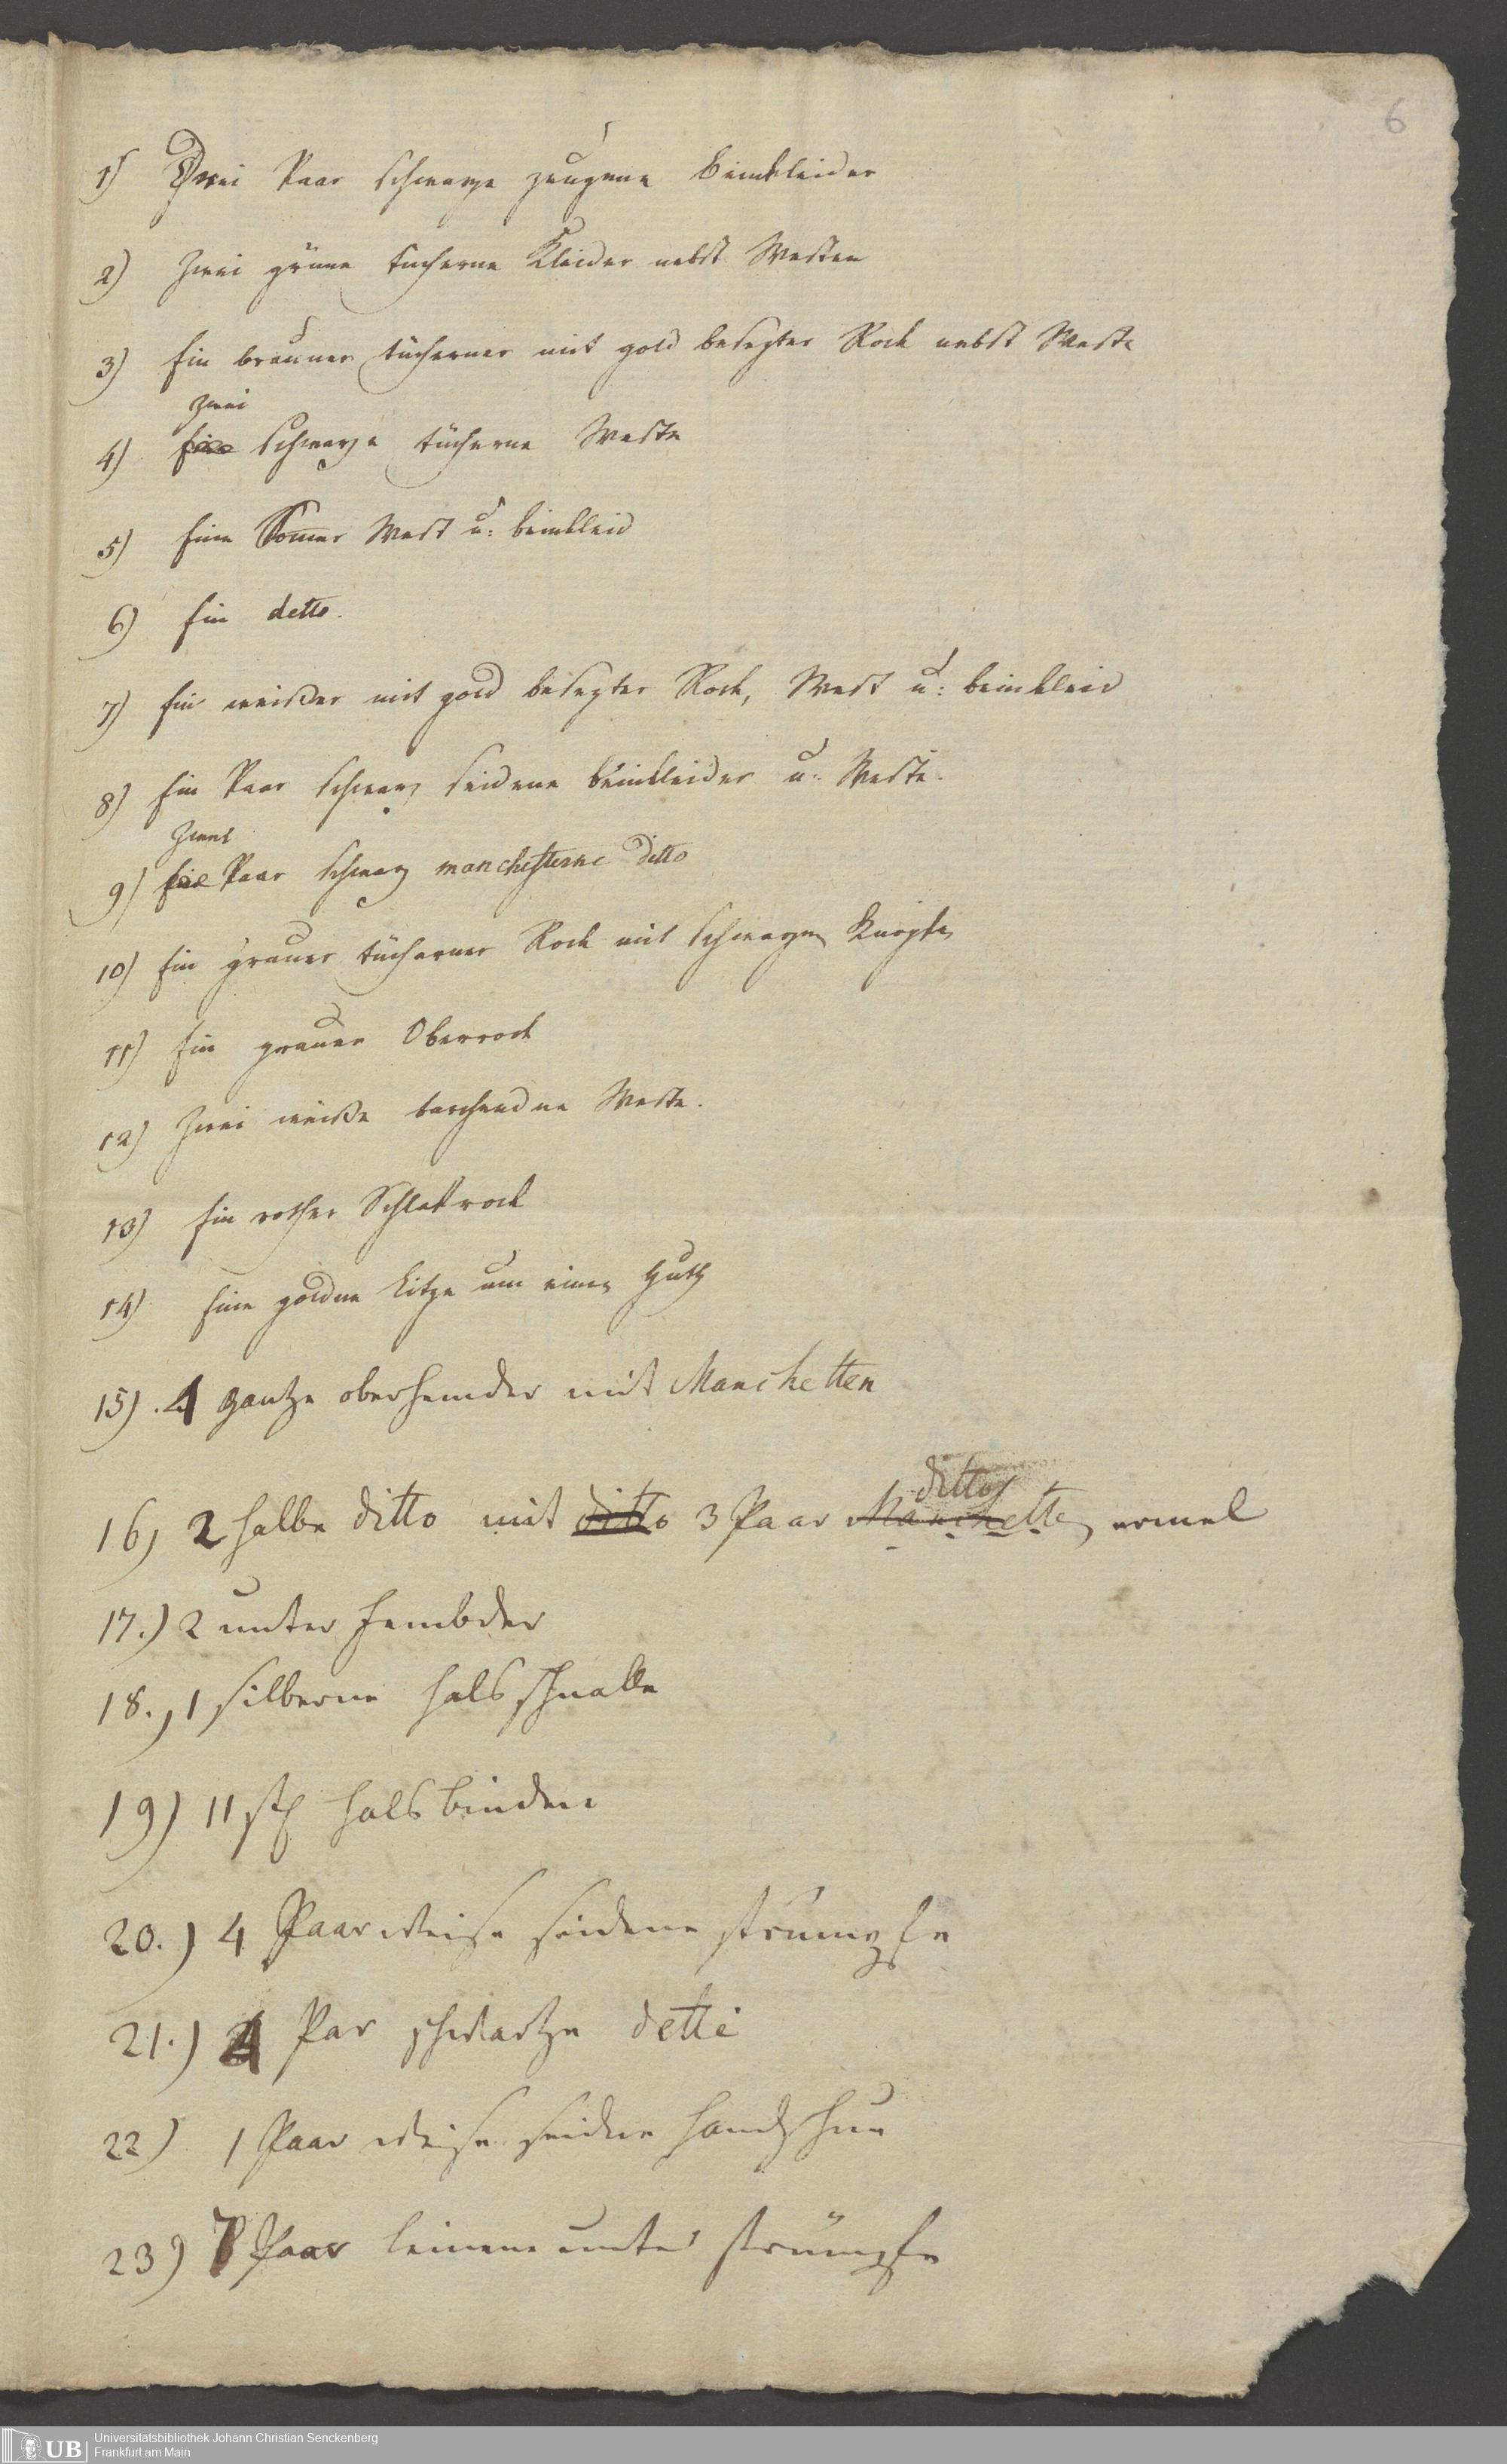 6
1) Drei Paar schwarze zeugene Beinkleider
2) Zwei grüne tucherne Kleider nebst Westen
3) Ein brauner tücherner mit gold besezter Rock nebst Weste
zwei
4) Eine schwarze tücherne Weste
5) Eine Somer West u: beinkleid
6) Ein detto.
7) Ein weißer mit gold besezter Rock, West u: beinkleid
8) Ein Paar schwarz seidene beinkleider u: Weste.
Zwei
9) Ein Paar schwarz manchesterne ditto
10) Ein grauer tücherner Rock mit schwarzen Knöpfen
11) Ein grauer Oberrock
12) Zwei weiße barchendne Weste.
13) Ein rother Schlafrock
14) Eine goldne Litze um einen Huth
15). 4 gantze oberhemder mit Manchetten
ditto
16) 2 halbe ditto mit ditto 3 Paar Manchetten ermel
17.) 2 unter hembder
18.) 1 silberne hals schnalle
19) 11 st halsbinden
20.) 4 Paar weise seidene strümpfe
21.) 4 Par schwartze detti
22) 1 Paar weise seidene handschue
23) 7 Paar leinene unter strümpfe
UB
Universitätsbibliothek Johann Christian Senckenberg
Frankfurt am Main